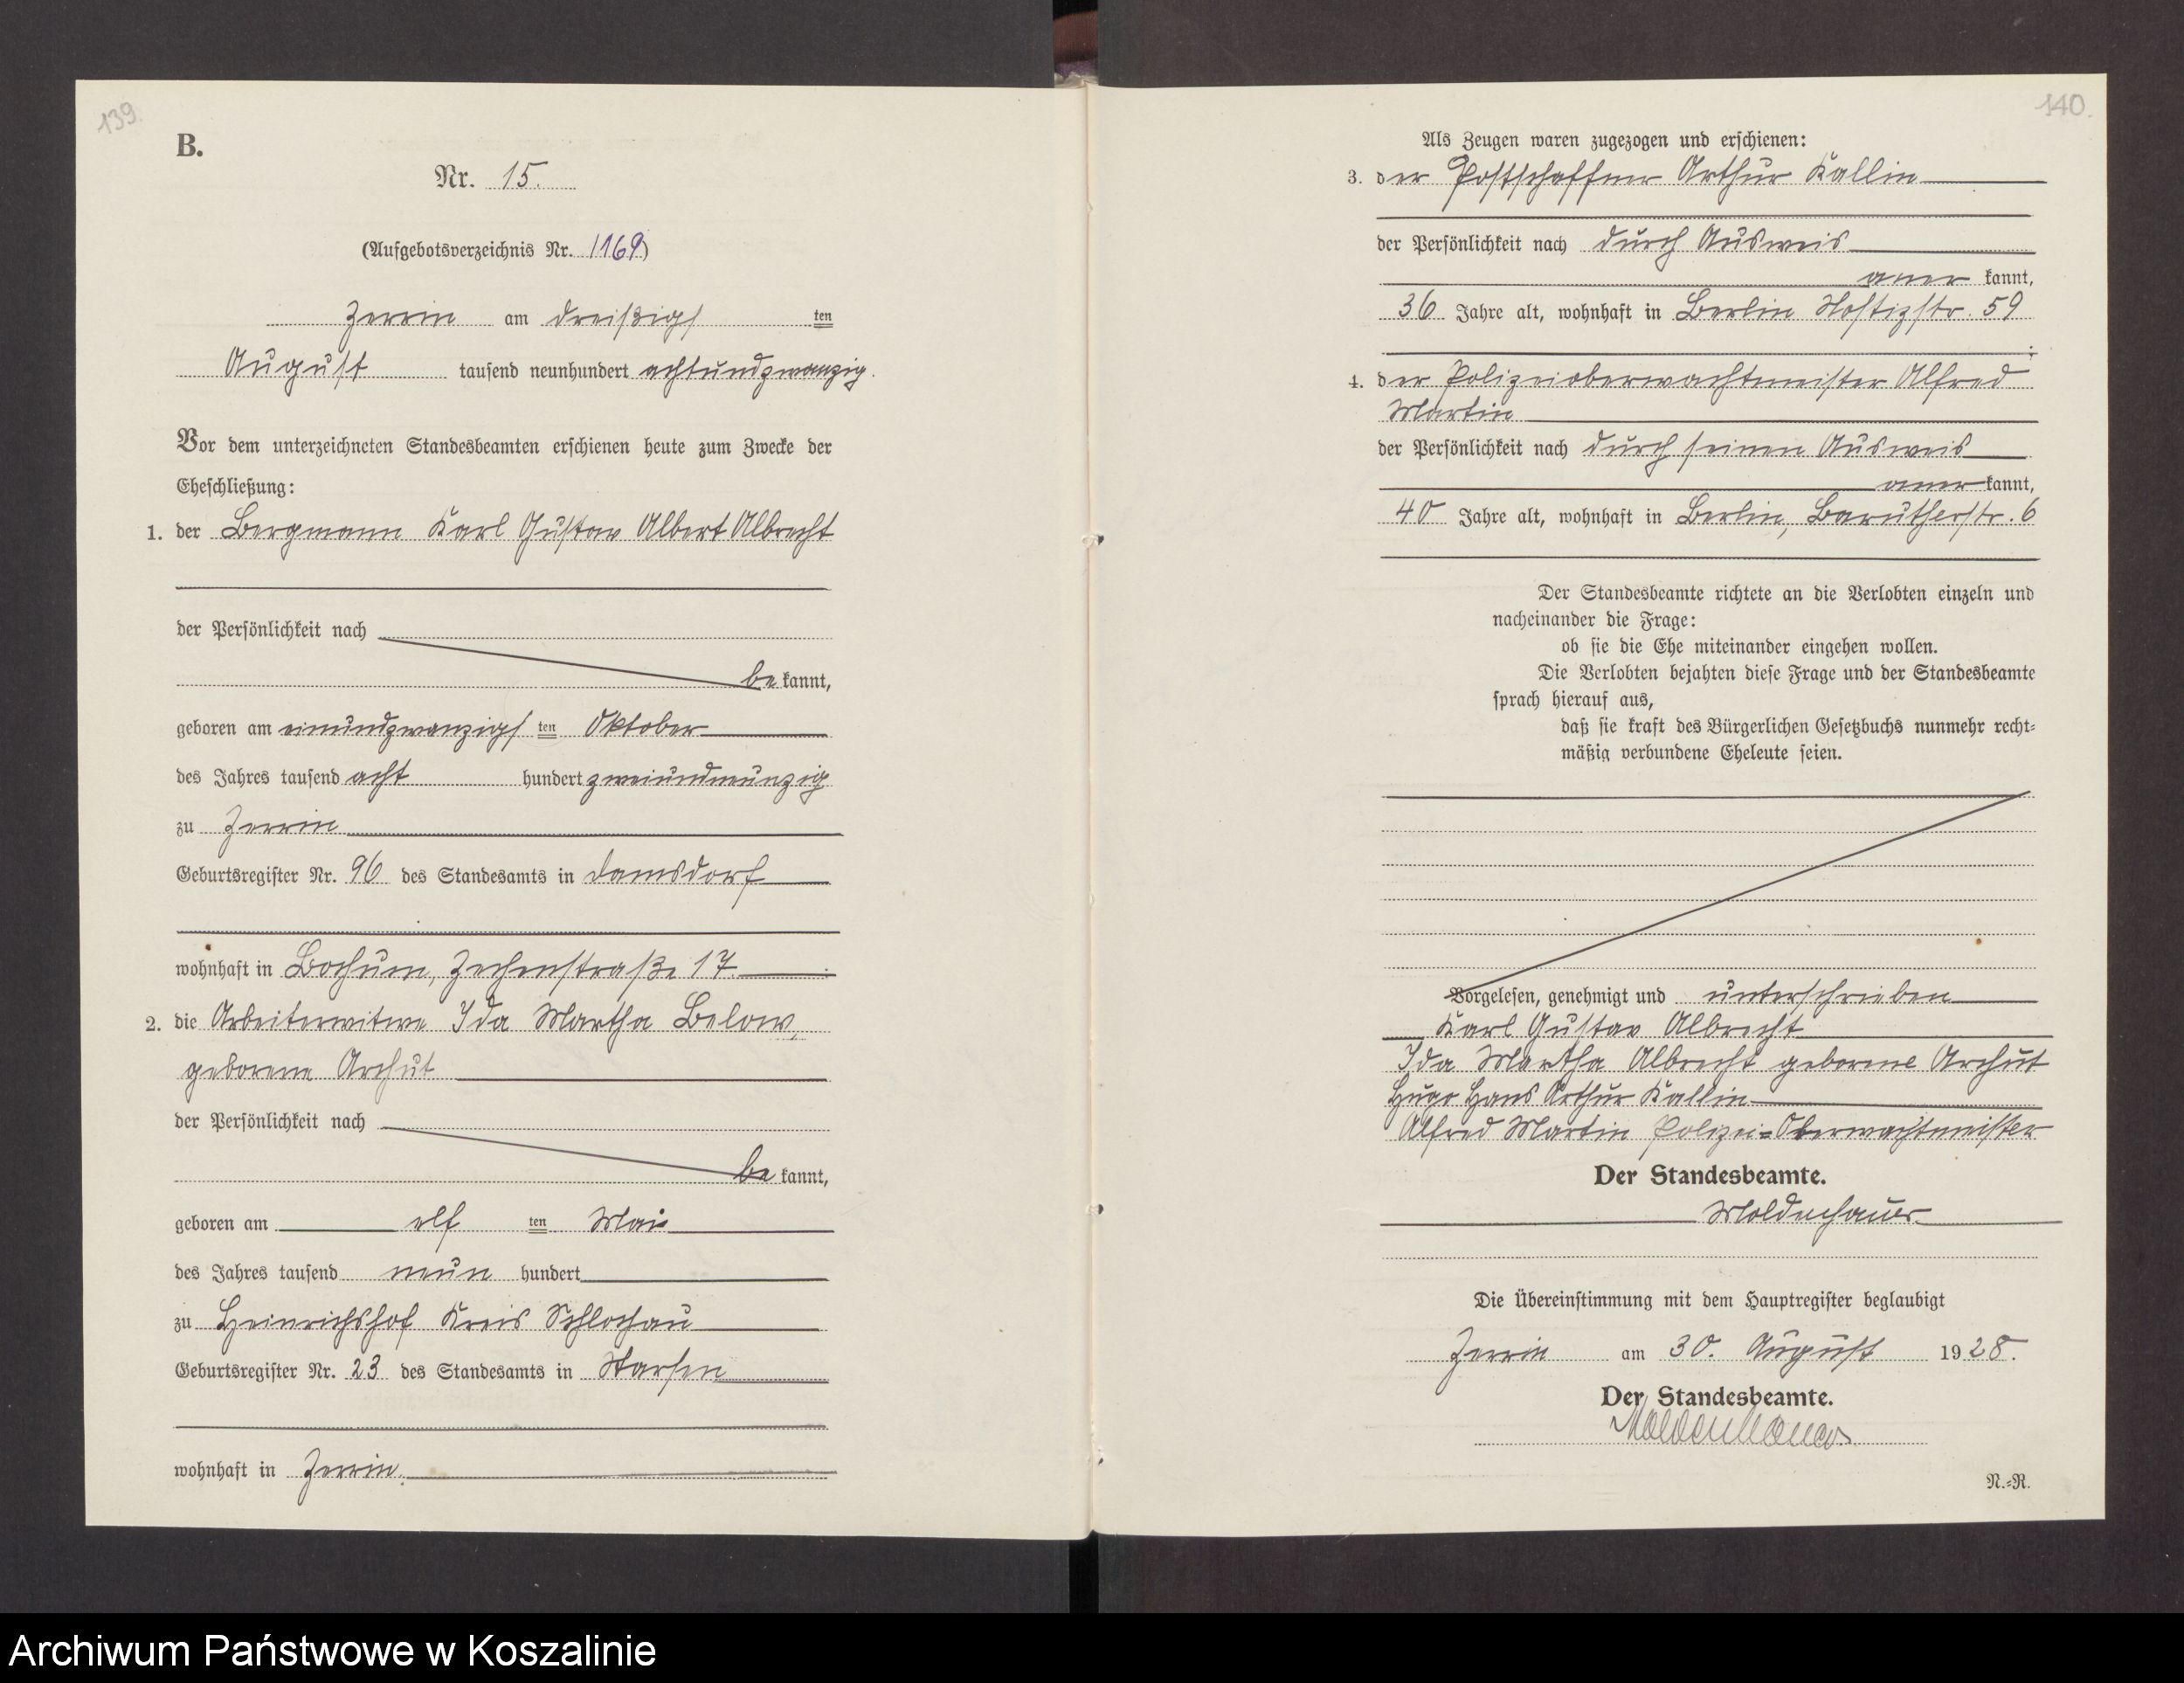 139.
B.
Nr. 15.
(Aufgebotsverzeichnis Nr. 1169)
Zerrin am dreißigsten
August tausend neunhundert achtundzwanzig.
Vor dem unterzeichneten Standesbeamten erschienen heute zum Zwecke der
Eheschließung:
1. der Bergmann Karl Gustav Albert Albrecht
der Persönlichkeit nach
be kannt,
geboren am einundzwanzigsten Oktober
des Jahres tausend acht hundert zweiundneunzig
zu Zerrin
Geburtsregister Nr. 96 des Standesamts in Damsdorf
wohnhaft in Bochum, Zechenstraße 17
2. die Arbeiterwitwe Ida Martha Below,
geborene Archut
der Persönlichkeit nach
be kannt,
geboren am elf ten Mai
des Jahres tausend neun hundert
zu Heinrichshof Kreis Schlochau
Geburtsregister Nr. 23 des Standesamts in Starsen
wohnhaft in Zerrin.
140.
Als Zeugen waren zugezogen und erschienen:
3. der Postschaffner Arthur Kallin
der Persönlichkeit nach durch Ausweis
aner kannt,
36 Jahre alt, wohnhaft in Berlin Nostizstr. 59
;
4. der Polizeioberwachtmeister Alfred
Martin
der Persönlichkeit nach durch seinen Ausweis
aner kannt,
40 Jahre alt, wohnhaft in Berlin, Barutherstr. 6
Der Standesbeamte richtete an die Verlobten einzeln und
nacheinander die Frage:
ob sie die Ehe miteinander eingehen wollen.
Die Verlobten bejahten diese Frage und der Standesbeamte
sprach hierauf aus,
daß sie kraft des Bürgerlichen Gesetzbuchs nunmehr recht-
mäßig verbundene Eheleute seien.
Vorgelesen, genehmigt und unterschrieben
Karl Gustav Albrecht
Ida Martha Albrecht geborene Archut
Hugo Hans Arthur Kallin
Alfred Martin Polizei-Oberwachtmeister
Der Standesbeamte.
Moldenhauer
Die Übereinstimmung mit dem Hauptregister beglaubigt
Zerrin am 30. August 1928.
Der Standesbeamte.
Moldenhauer
N.-R.
Archiwum Państwowe w Koszalinie